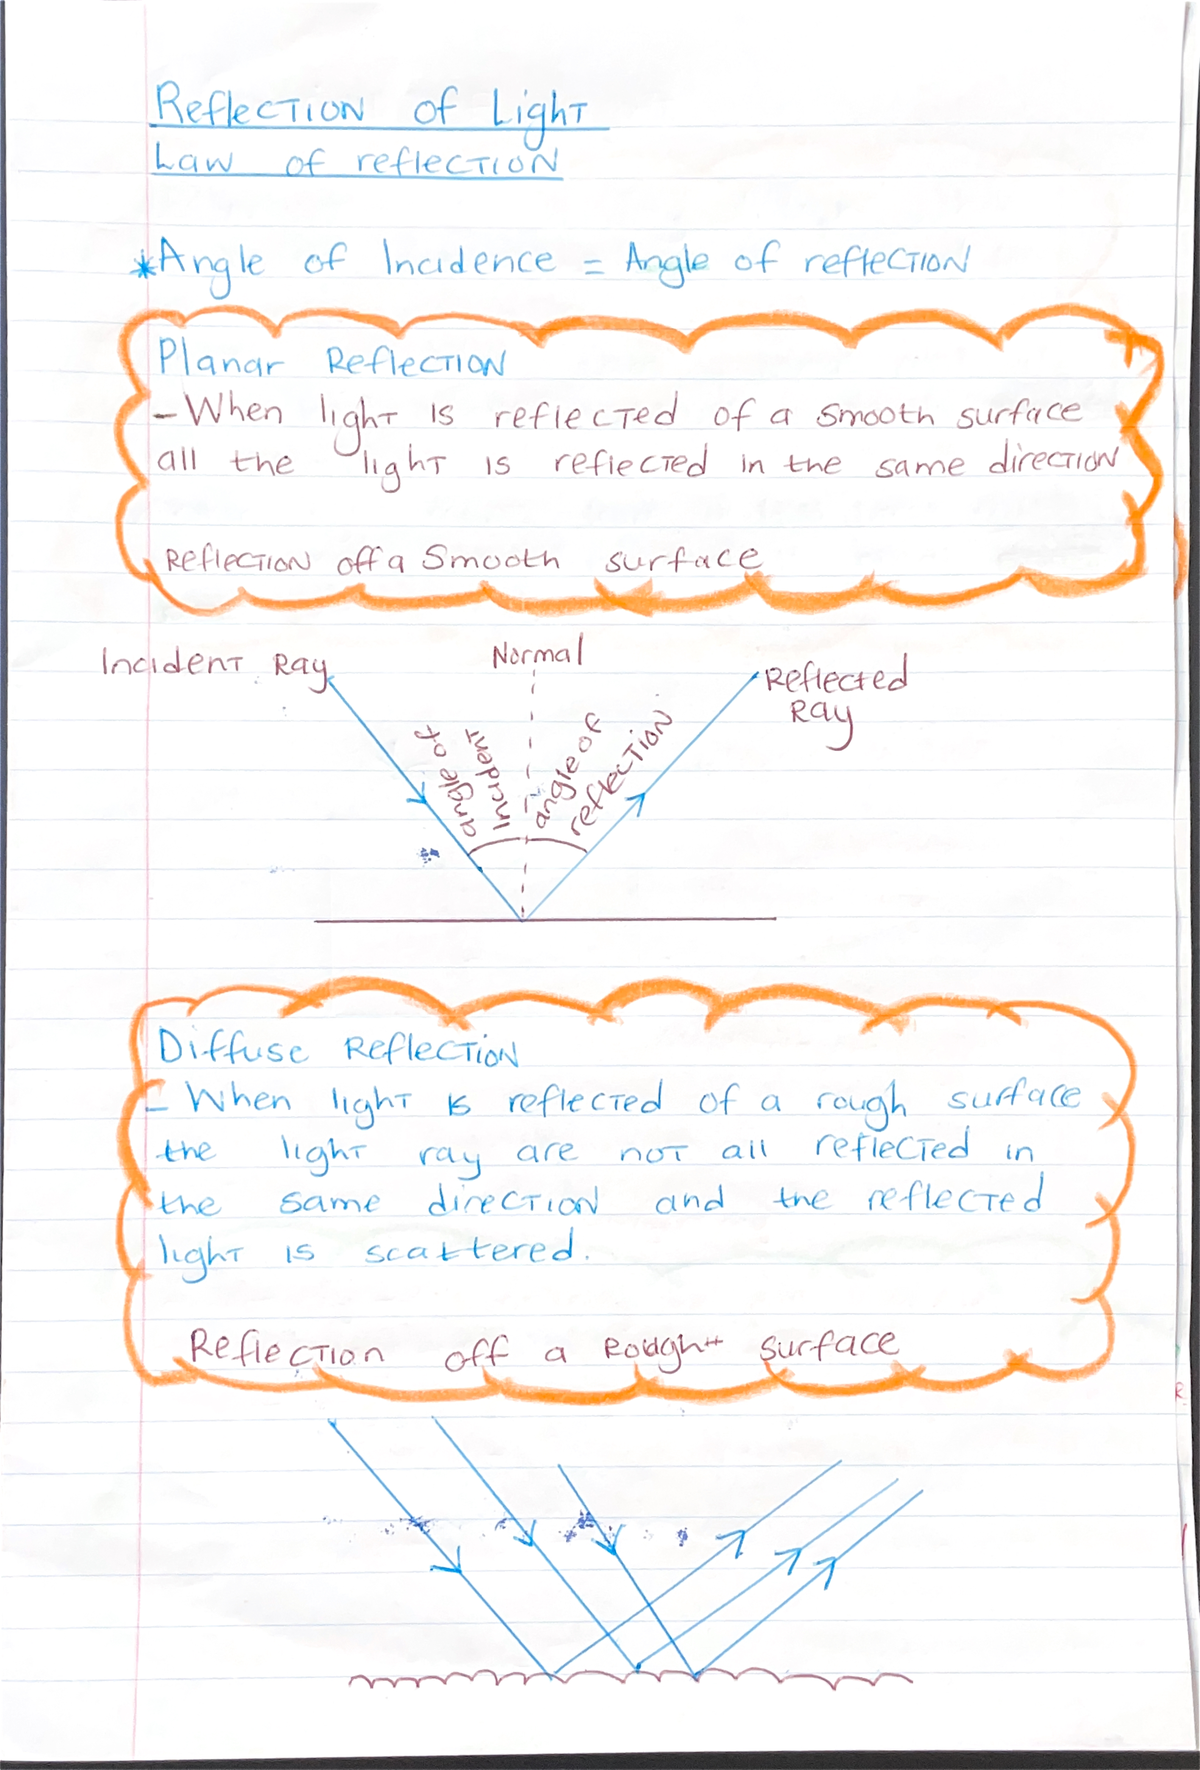 Reflection of Light
Law of reflection
*Angle of Incidence = Angle of reflection
Planar Reflection
- When light is reflected of a smooth surface
all the light is reflected in the same direction
Reflection off a Smooth surface
Incident Ray
Normal
Reflected
Ray
angle of
Incident
angle of
reflection
Diffuse Reflection
- When light is reflected of a rough surface
the light ray are not all reflected in
the same direction and the reflected
light is scattered.
Reflection off a Rough surface
R